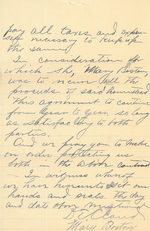 pay all taxes and expen-
ses necessary to keep up
the same
In consideration for
which she, Mary Boston,
was to receive all the
proceeds of said homestead
This agreement to continue
from year to year so long
as satisfactory to both
parties.
And we pray you to make
an order protecting us
both in the above contract
In witness whereof
we have hereunto set our
hands and seals the day
and date above written
Mary Boston